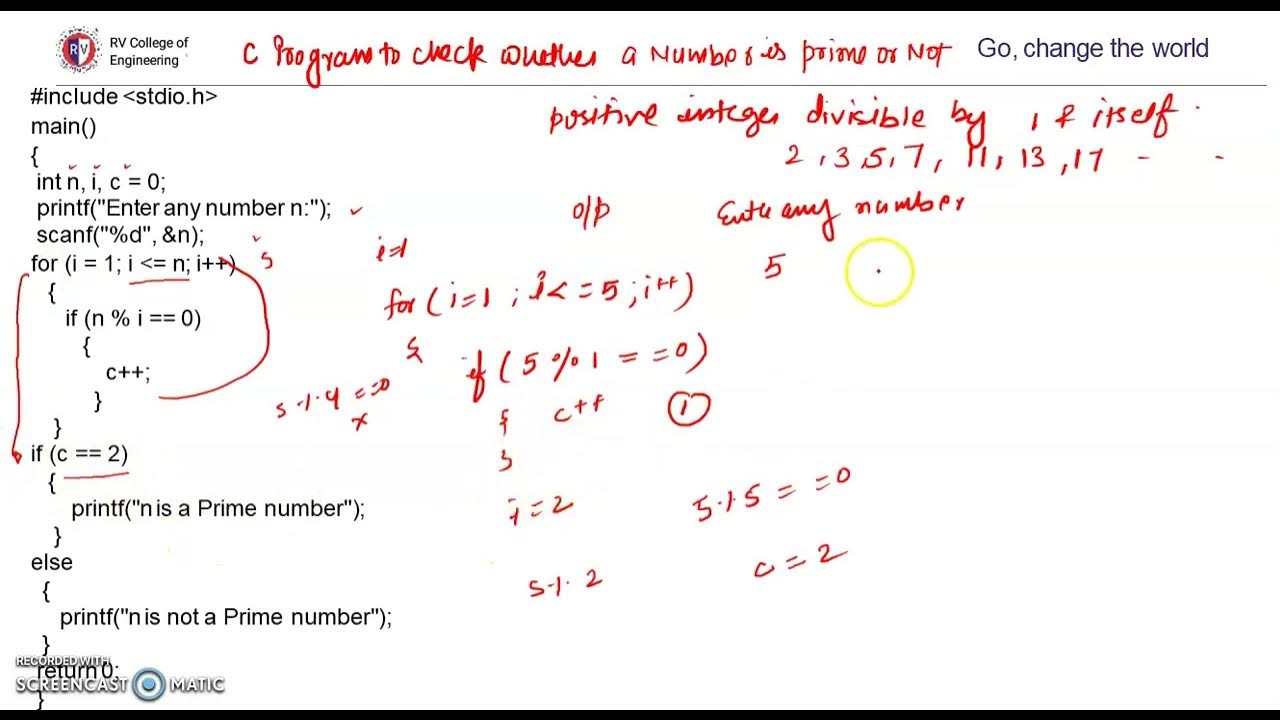 RV College of
Engineering
RV
C Program to check whether a Number is prime or Not
Go, change the world
#include <stdio.h>
main()
{
int n, i, c = 0;
printf("Enter any number n:");
scanf("%d", &n);
for (i = 1; i <= n; i++)
{
if (n % i == 0)
{
c++;
}
}
if (c == 2)
{
printf("n is a Prime number");
}
else
{
printf("n is not a Prime number");
}
return 0;
}
positive integer divisible by 1 & itself.
2, 3, 5, 7, 11, 13, 17 - -
o/p Enter any number
5
5
i=1
for (i=1; i<=5; i++)
{
if (5%1 ==0)
{ c++ 1
}
5%4 ==0
x
i=2 5%5 ==0
5%2 c=2
RECORDED WITH
SCREENCAST MATIC